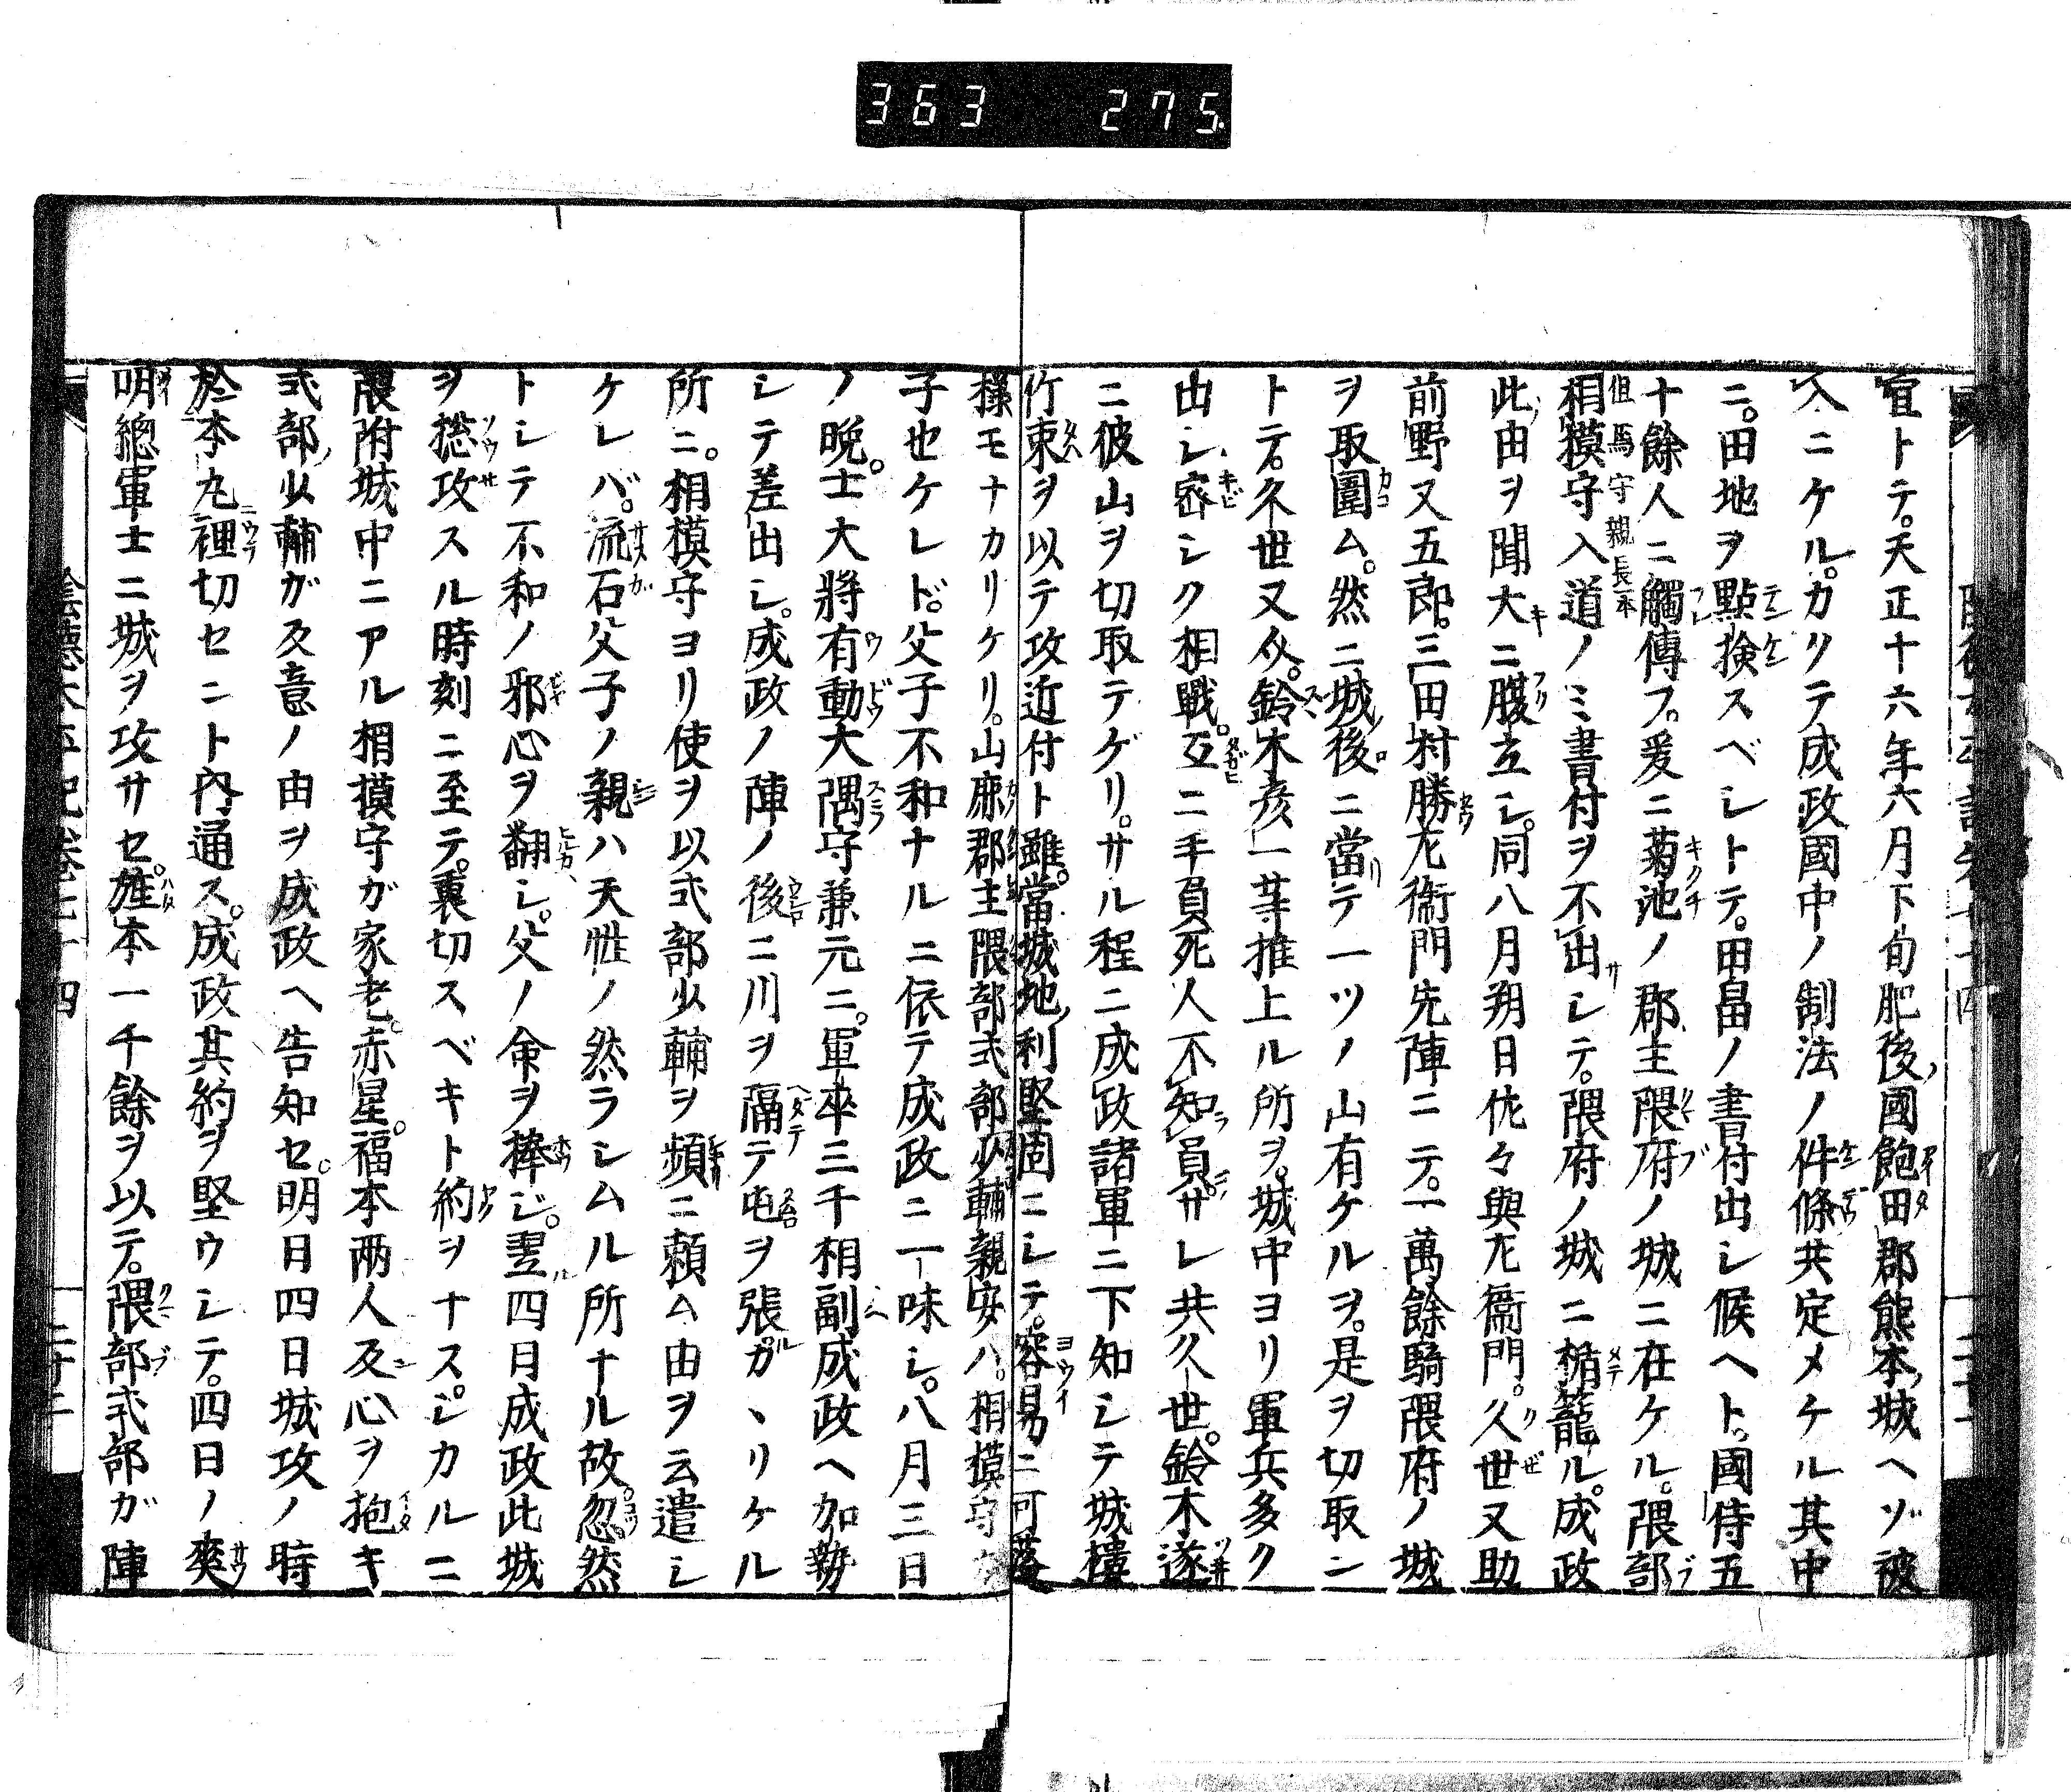 363 275.
宜トテ。天正十六年六月下旬肥後ノ國飽田郡熊本ノ城ヘゾ被
入ニケル。カクテ成政國中ノ制法ノ件條共定メケル其中
ニ。田地ヲ點撿スベシトテ。田畠ノ書付出シ候ヘト。國侍五
十餘人ニ觸傳フ。爰ニ菊池ノ郡主隈府ノ城ニ在ケル。隈部
但馬守親長一本
相摸守入道ノミ書付ヲ不出シテ。隈府ノ城ニ楯籠ル。成政
此由ヲ聞大ニ腹立シ。同八月朔日佐々與左衞門。久世又助
前野又五郎。三田村勝左衞門先陣ニテ。一萬餘騎隈府ノ城
ヲ取圍ム。然ニ城ノ後ニ當テ一ツノ山有ケルヲ。是ヲ切取ン
トテ。久世又介。鈴木彦一等推上ル所ヲ。城中ヨリ軍兵多ク
出シ、密シク相戰。互ニ手負死人不知員。サレ共久世。鈴木遂
ニ彼山ヲ切取テゲリ。サル程ニ成政諸軍ニ下知シテ城樓
竹束ヲ以テ攻近付ト雖。當城地ノ利堅固ニシテ。容易ニ可落
様モナカリケリ。山鹿郡主隈部式部少輔親安ハ。相摸守
子也ケレド。父子不和ナルニ依テ成政ニ一味シ。八月三日
ノ晩。士大將有動大隅守兼元ニ。軍卒三千相副成政ヘ加勢
シテ差出シ。成政ノ陣ノ後ニ川ヲ隔テ屯ヲ張ガヽリケル
所ニ。相模守ヨリ使ヲ以式部少輔ヲ頻ニ頼ム由ヲ云遣シ
ケレバ。流石父子ノ親ハ天性ノ然ラシムル所ナル故。忽然
トシテ不和ノ邪心ヲ翻シ。父ノ命ヲ捧ジ。翌四日成政此城
ヲ捴攻スル時刻ニ至テ。裏切スベキト約ヲナスジカルニ
隈附城中ニアル相摸守ガ家老。赤星。福本両人及心ヲ抱キ
式部少輔ガ反意ノ由ヲ成政ヘ告知セ。明日四日城攻ノ時
於本丸裡切セニト内通ス。成政其約ヲ堅ウシテ。四日ノ爽
明總軍士ニ城ヲ攻サセ。旌本一千餘ヲ以テ。隈部式部ガ陣